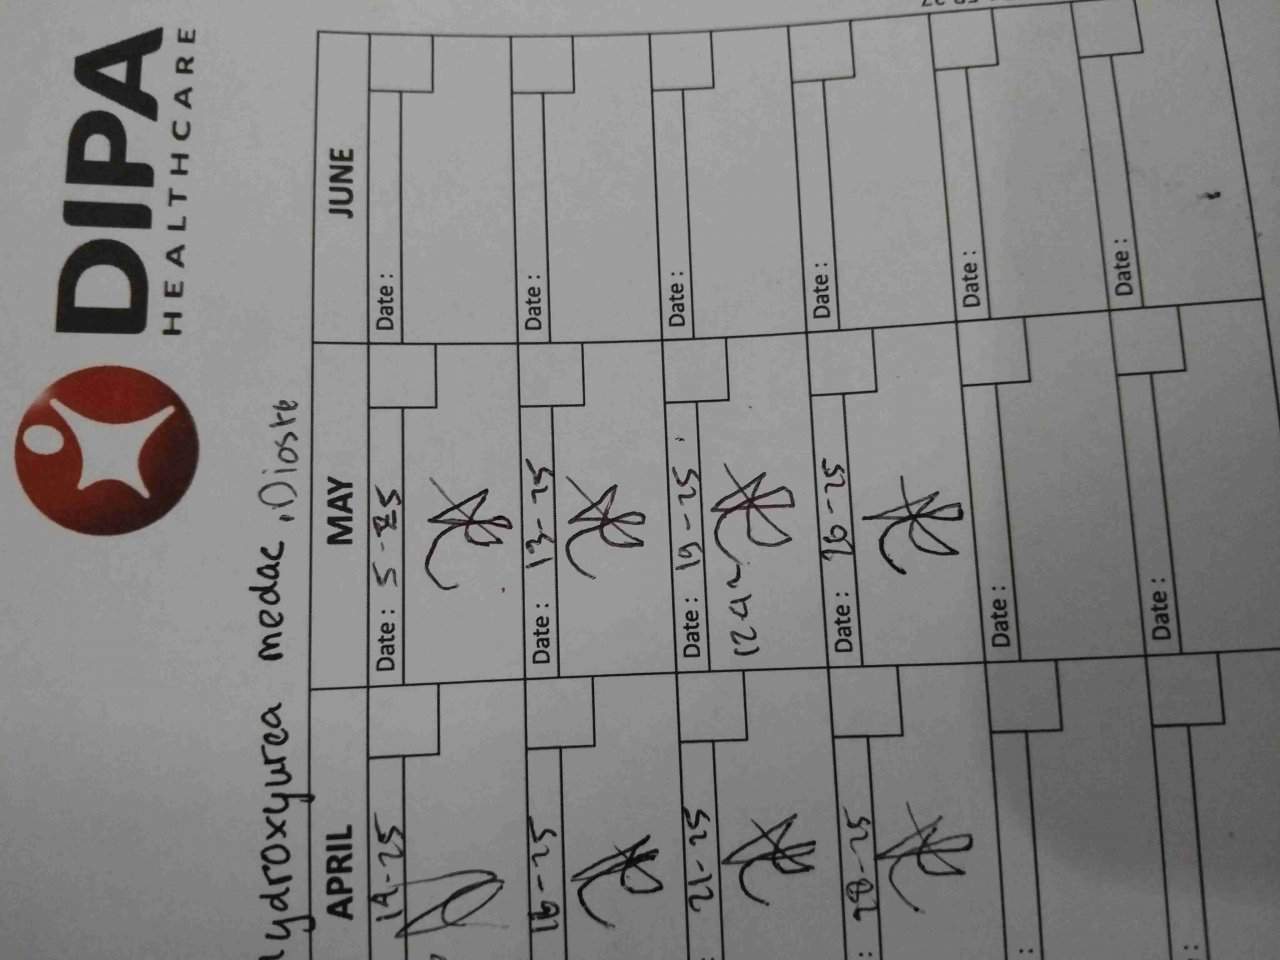 DIPA
HEALTHCARE
ydroxyurea medac, Dioste
APRIL MAY JUNE
14-25 Date: 5-25 Date:
16-25 Date: 13-25 Date:
21-25 Date: 19-25 Date:
: 28-25 Date: 26-25 Date:
: Date: Date:
: Date: Date: